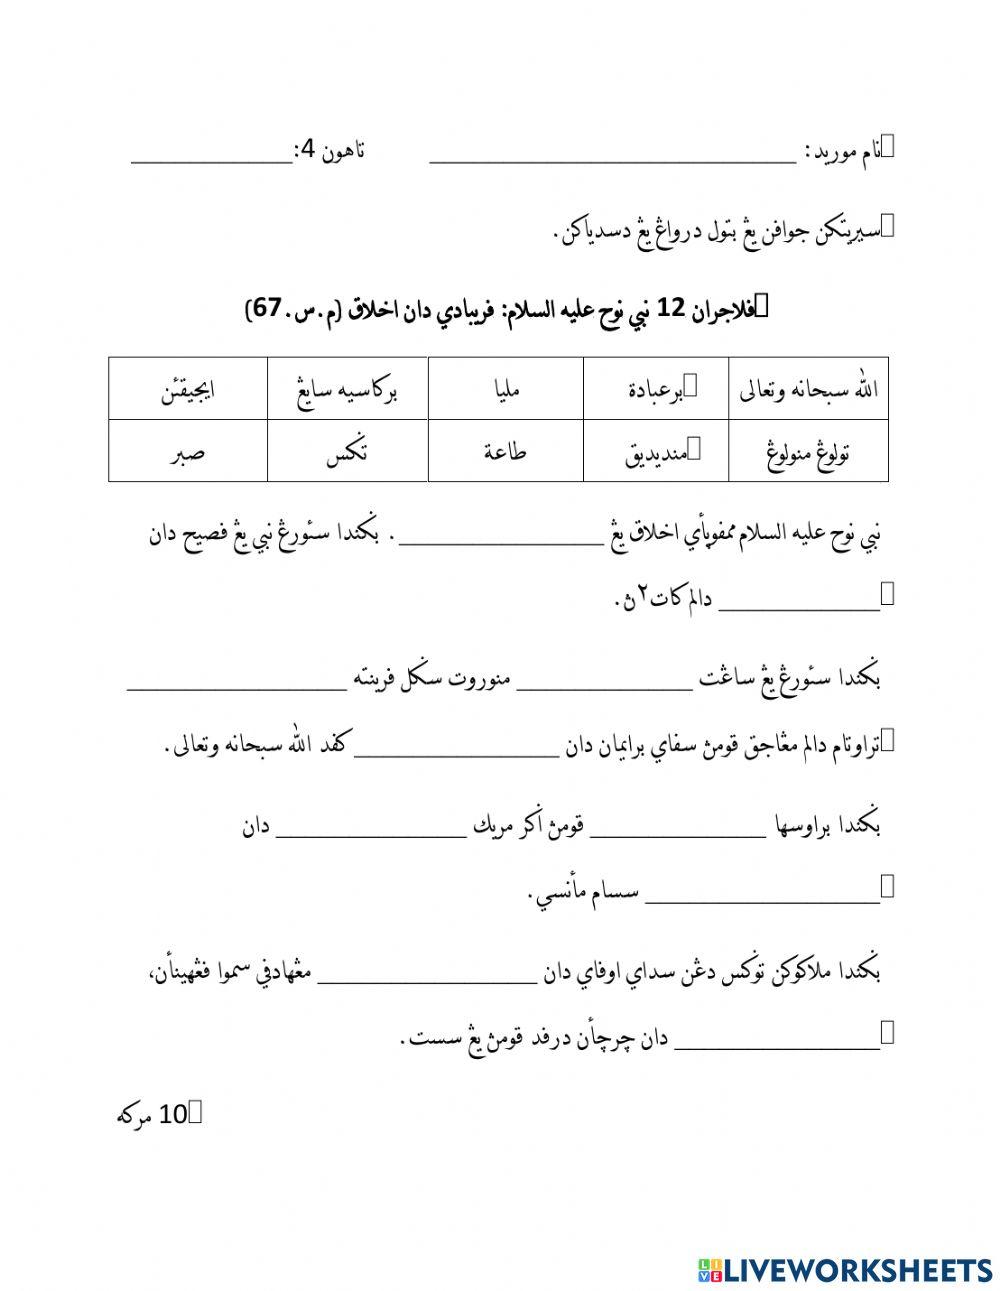 نام موريد: _________________________ تاهون 4:___________
سيريتکن جوافن يڠ بتول درواڠ يڠ دسدياکن.
فلاجران 12 نبي نوح عليه السلام: فريبادي دان اخلاق (م.س.67)
الله سبحانه وتعالى برعبادة مليا برکاسيه سايڠ ايجيقئن
تولوڠ منولوڠ منديديق طاعة تݢس صبر
نبي نوح عليه السلام ممفوڽأي اخلاق يڠ ______________. بݢيندا سئورڠ نبي يڠ فصيح دان
___________ دالم کات٢ڽ.
بݢيندا سئورڠ يڠ ساڠت ____________ منوروت سݢل فرينته _______________
تراوتام دالم مڠاجق قومڽ سفاي برايمان دان ______________ کفد الله سبحانه وتعالى.
بݢيندا براوسها ____________ قومڽ اݢر مريك _____________ دان
________________ سسام مأنسي.
بݢيندا ملاکوکن توݢس دڠن سداي اوفاي دان _______________ مڠهادفي سموا فڠهينأن،
______________ دان چرچأن درفد قومڽ يڠ سست.
10 مرکه
LIVEWORKSHEETS